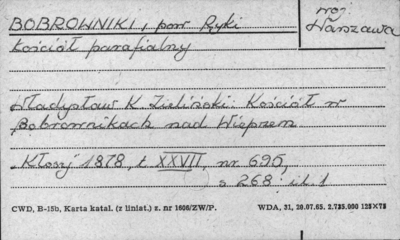 BOBROWNIKI, pow Ryki
woj.
Warszawa
kościół parafialny
Władysław K. Zieliński: Kościół w
Bobrownikach nad Wieprzem
"Kłosy" 1878, t. XXVII, nr 695,
s 268: il. 1
CWD, B-15b, Karta katal. (z liniat.) z. nr 1606/ZW/P. WDA, 31, 20.07.65. 2.735.000 125X75